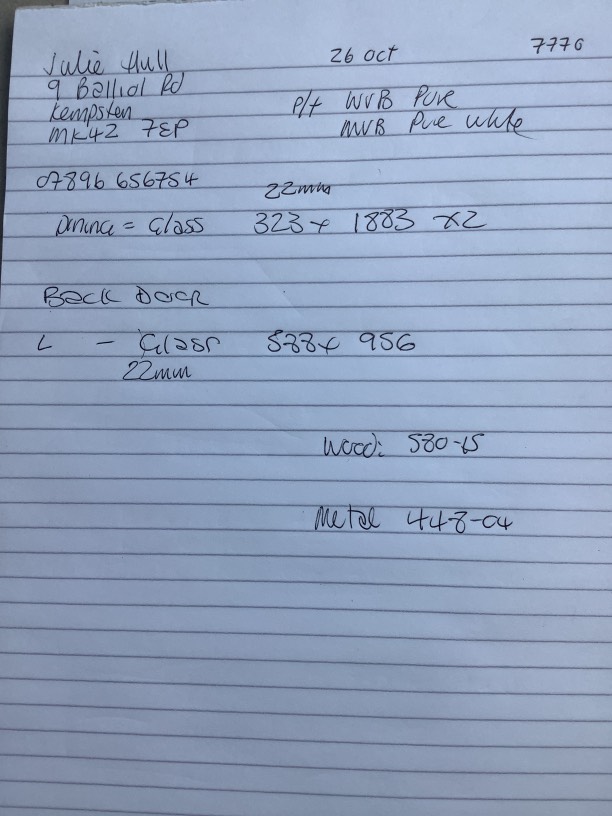 26 oct
7776
Julie Hull
9 Balliol Rd
Kempsten
MK42 7EP
P/t WVB Pure
MVB Pure White
07896 656754
22mm
Dining = Glass 323 x 1883 x2
Back Door
L - Glass 588 x 956
22mm
Wood: 580-65
Metal 448-04